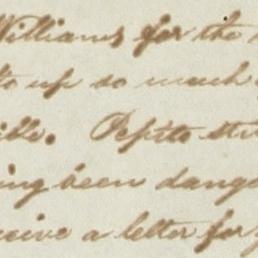 Williams for the
to up so much
ible. Pepito sti
ing been dange
ceive a letter for